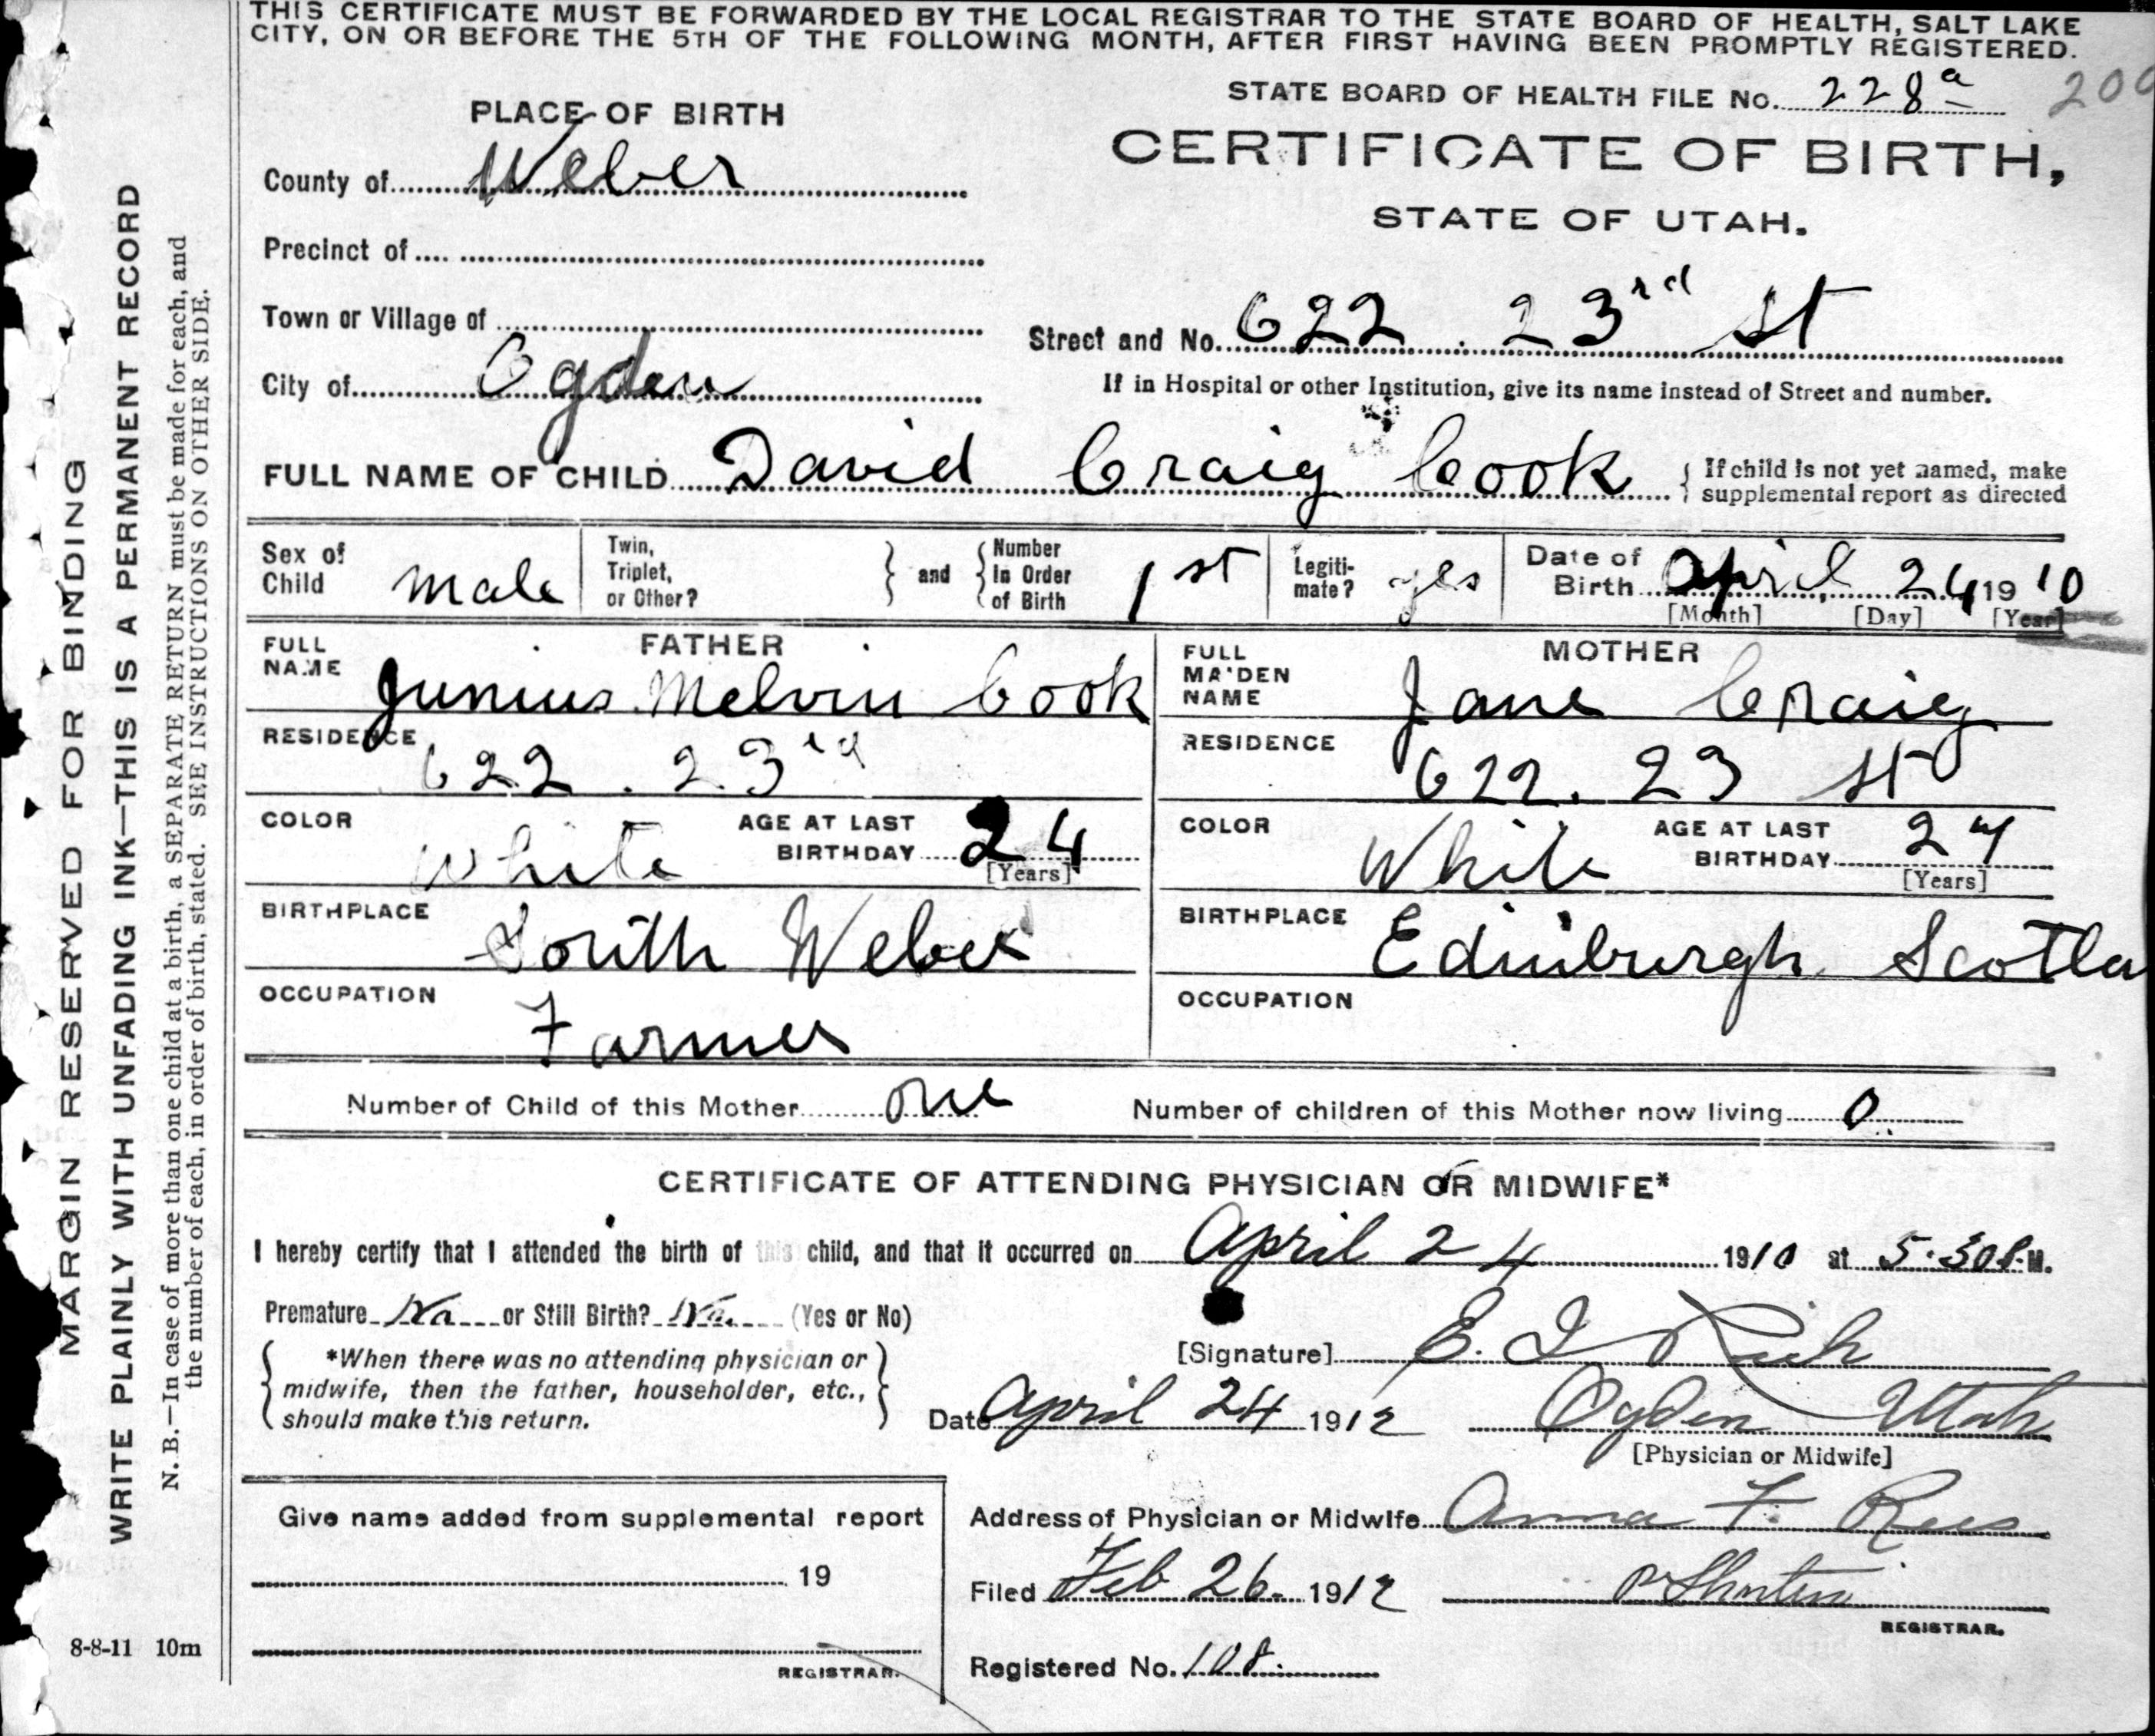 THIS CERTIFICATE MUST BE FORWARDED BY THE LOCAL REGISTRAR TO THE STATE BOARD OF HEALTH, SALT LAKE
CITY, ON OR BEFORE THE 5TH OF THE FOLLOWING MONTH, AFTER FIRST HAVING BEEN PROMPTLY REGISTERED.
STATE BOARD OF HEALTH FILE No. 228a
200
PLACE OF BIRTH
CERTIFICATE OF BIRTH,
STATE OF UTAH.
County of Weber
Precinct of
Town or Village of
Street and No. 622 . 23rd St
City of Ogden
If in Hospital or other Institution, give its name instead of Street and number.
FULL NAME OF CHILD David Craig Cook
{ If child is not yet named, make
supplemental report as directed
Sex of Child male
Twin, Triplet, or Other? } and { Number In Order of Birth 1st
Legiti-mate? yes
Date of Birth April 24 1910
[Month] [Day] [Year]
FATHER
FULL NAME Junius Melvin Cook
RESIDENCE 622 . 23rd
COLOR White AGE AT LAST BIRTHDAY 24 [Years]
BIRTHPLACE South Weber
OCCUPATION Farmer
MOTHER
FULL MAIDEN NAME Jane Craig
RESIDENCE 622 . 23 St
COLOR White AGE AT LAST BIRTHDAY [Years]
BIRTHPLACE Edinburgh Scotla
OCCUPATION
Number of Child of this Mother one Number of children of this Mother now living 0
CERTIFICATE OF ATTENDING PHYSICIAN OR MIDWIFE*
I hereby certify that I attended the birth of this child, and that it occurred on April 24 1910 at 5.30 P.M.
Premature No or Still Birth? No (Yes or No)
*When there was no attending physician or
midwife, then the father, householder, etc.,
should make this return.
[Signature] E. I. Rich
Date April 24 1912 Ogden Utah
[Physician or Midwife]
Give name added from supplemental report
19
REGISTRAR.
Address of Physician or Midwife Anna F. Rees
Filed Feb 26. 1912
REGISTRAR.
Registered No. 108.
8-8-11 10m
MARGIN RESERVED FOR BINDING
WRITE PLAINLY WITH UNFADING INK—THIS IS A PERMANENT RECORD
N. B.—In case of more than one child at a birth, a SEPARATE RETURN must be made for each, and
the number of each, in order of birth, stated. SEE INSTRUCTIONS ON OTHER SIDE.